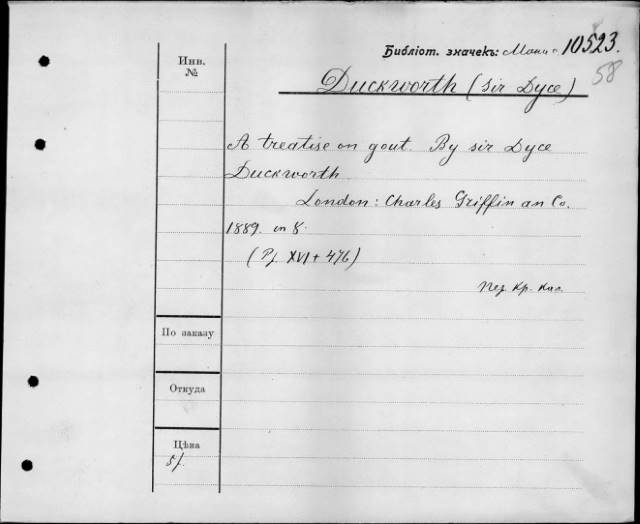 Библіот. значекъ: 10523.
58
Инв.
№
Duckworth (sir Dyce)
A treatise on gout. By sir Dyce
Duckworth
London: Charles Griffin an Co.
1889. in 8.
(Pf. XVI + 476)
Кр. Кал.
По заказу
Откуда
Цѣна
5/.